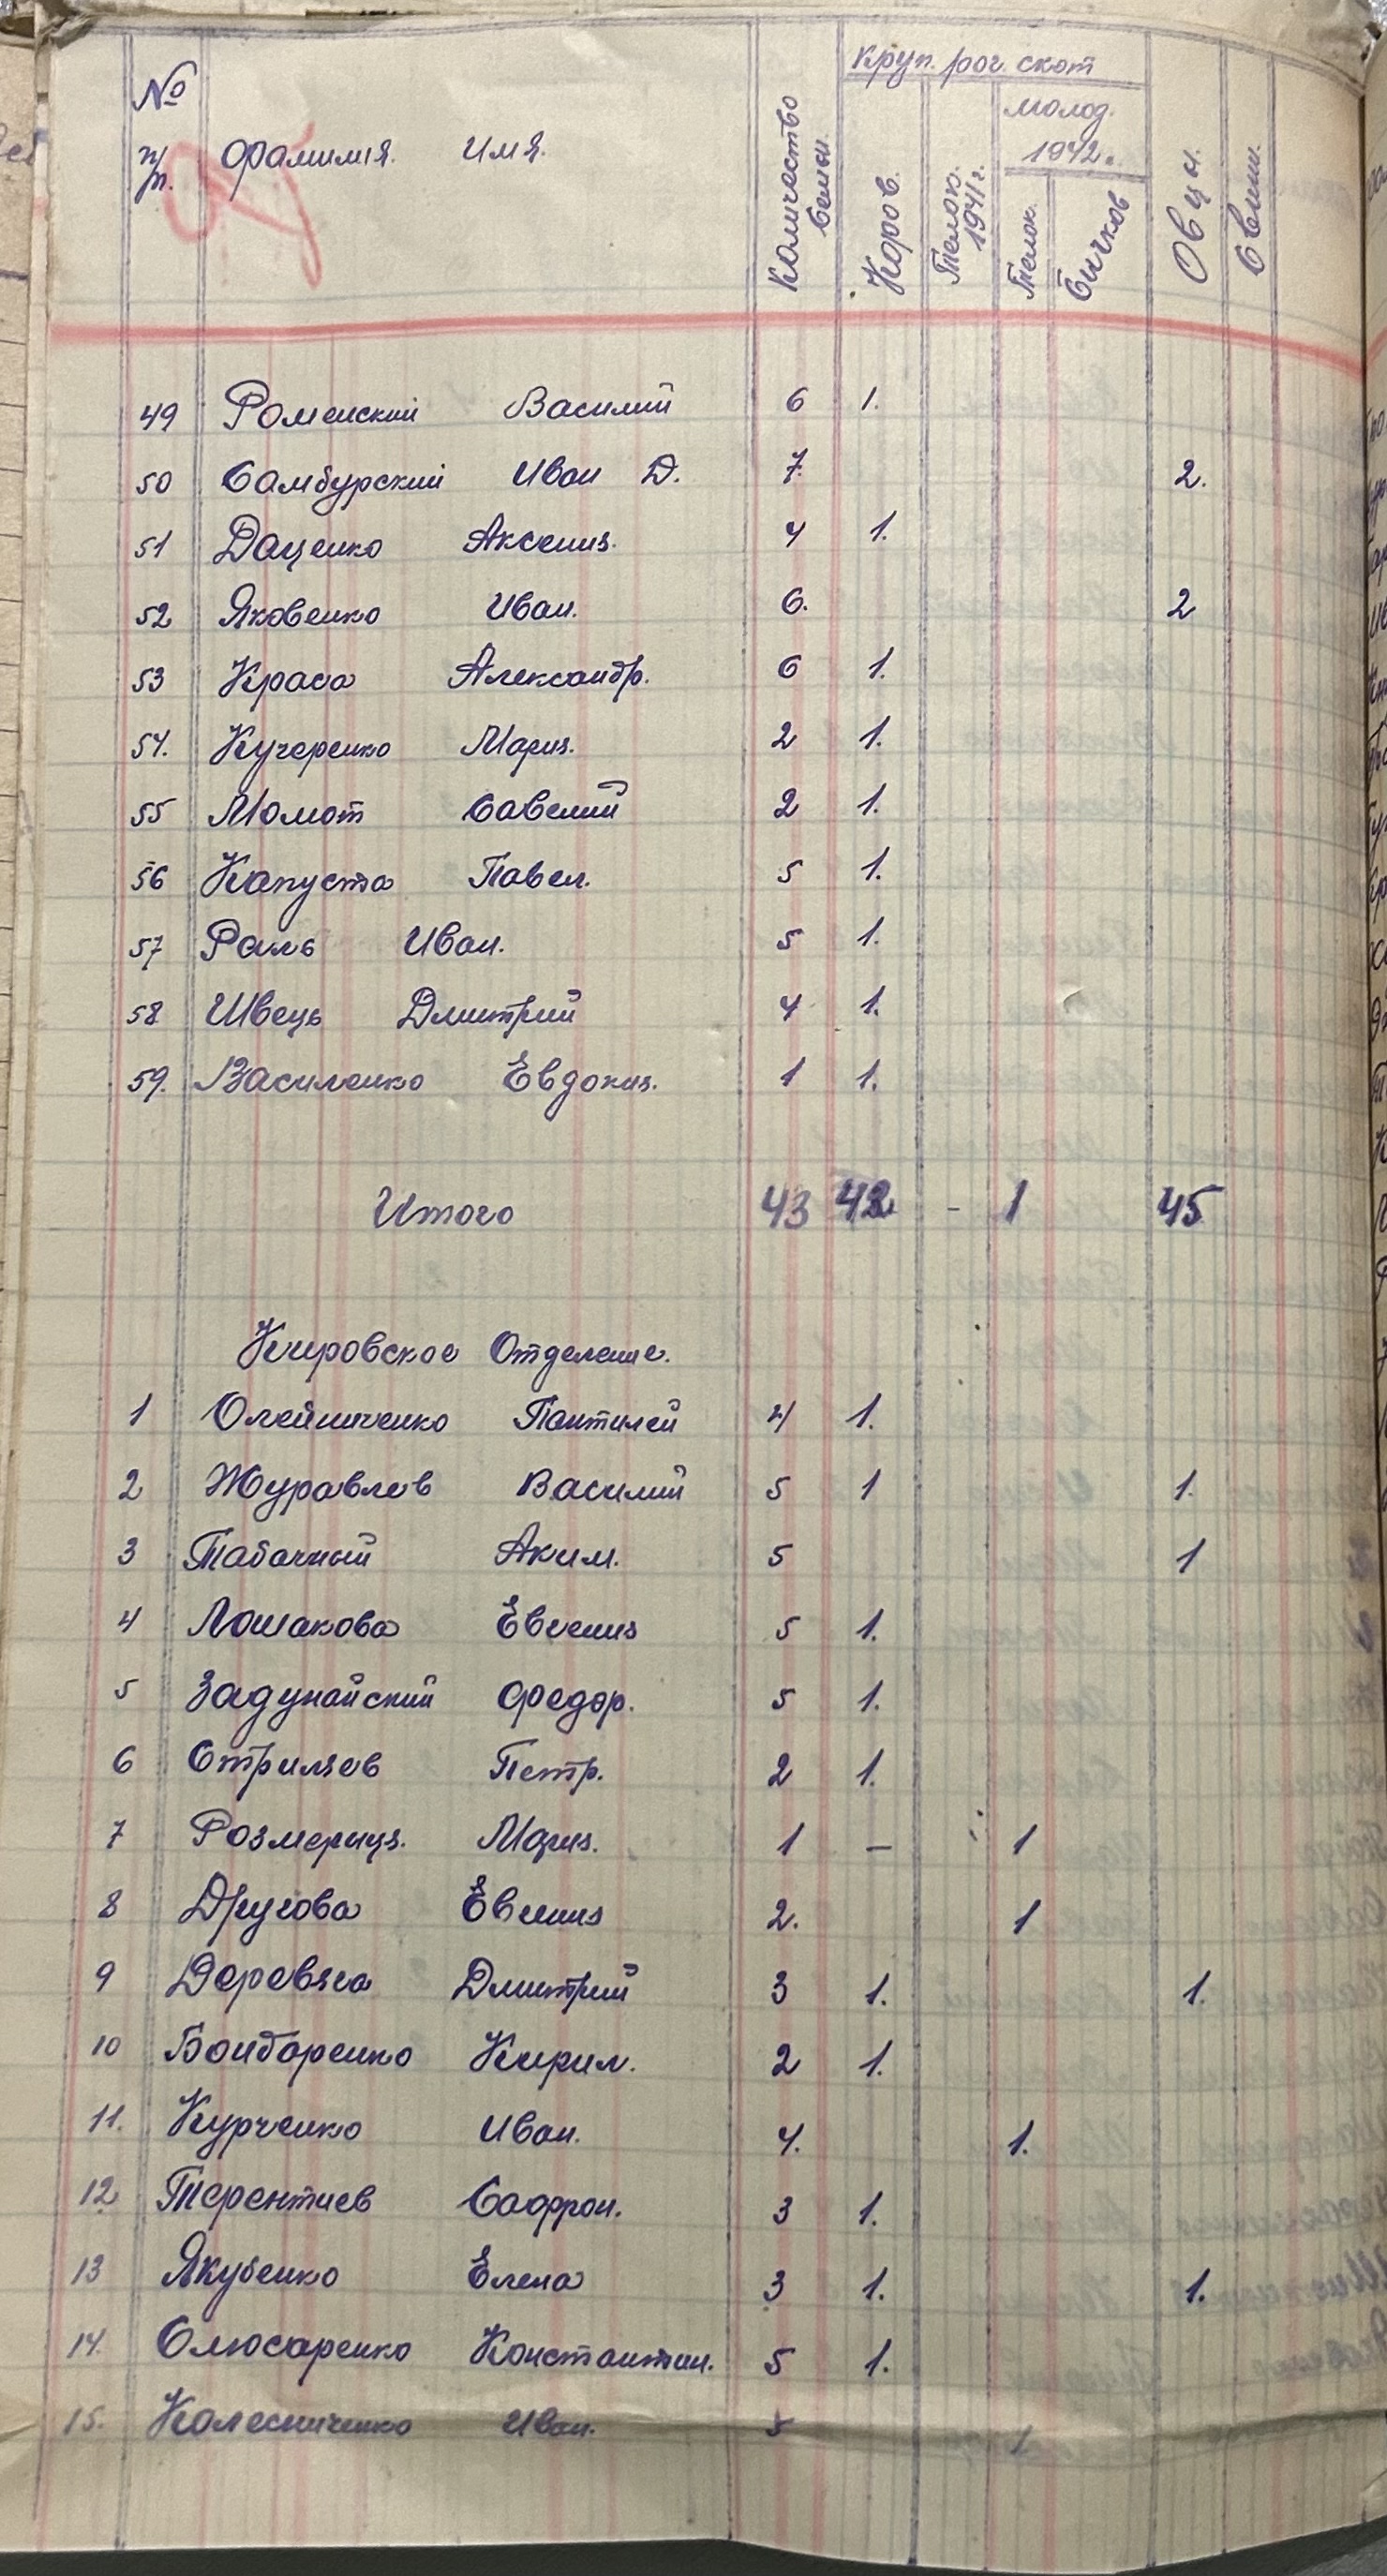 № п/п. Фамилия. Имя. Количество Семьи. Круп. рог. скот
Коров. Телок. 1941 г. Молод. 1942 г. Овцы. Свиньи.
Телок. Бычков
49 Роменский Василий 6 1.
50 Самбурский Иван Д. 7. 2.
51 Даценко Аксения. 4 1.
52 Яковенко Иван. 6. 2
53 Краса Александр. 6 1.
54. Кучеренко Мария. 2 1.
55 Момот Савелий 2 1.
56 Капуста Павел. 5 1.
57 Раль Иван. 5 1.
58 Швець Дмитрий 4 1.
59. Василенко Евдокия. 1 1.
Итого 43 42 - 1 45
Кировское Отделение.
1 Олейниченко Пантилей 4 1.
2 Журавлев Василий 5 1 1.
3 Табачный Аким. 5 1
4 Лошакова Евгения 5 1.
5 Задунайский Федор. 5 1.
6 Стриляев Петр. 2 1.
7 Розмерица. Мария. 1 – 1
8 Другова Евгения 2. 1
9 Деревяга Дмитрий 3 1. 1.
10 Бондаренко Кирил. 2 1.
11. Курченко Иван. 4. 1.
12 Терентиев Сафрон. 3 1.
13 Якубенко Елена 3 1. 1.
14. Слюсаренко Константин. 5 1.
15. Колесниченко Иван. 5 1